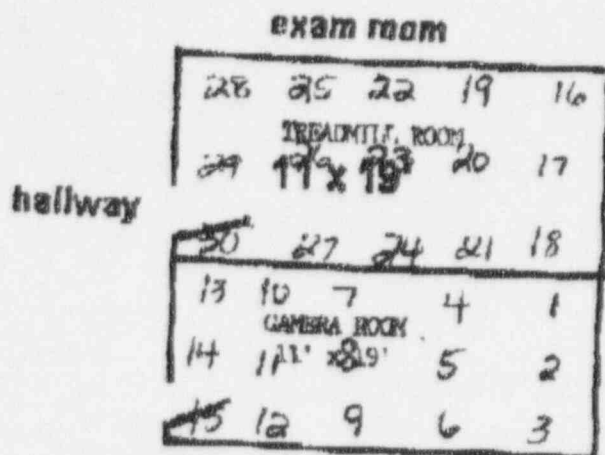 exam room
28 25 22 19 16
TREADMILL ROOM
29 26 23 20 17
11 x 19'
hallway
30 27 24 21 18
13 10 7 4 1
CAMERA ROOM
14 11 8 5 2
11' x 19'
15 12 9 6 3